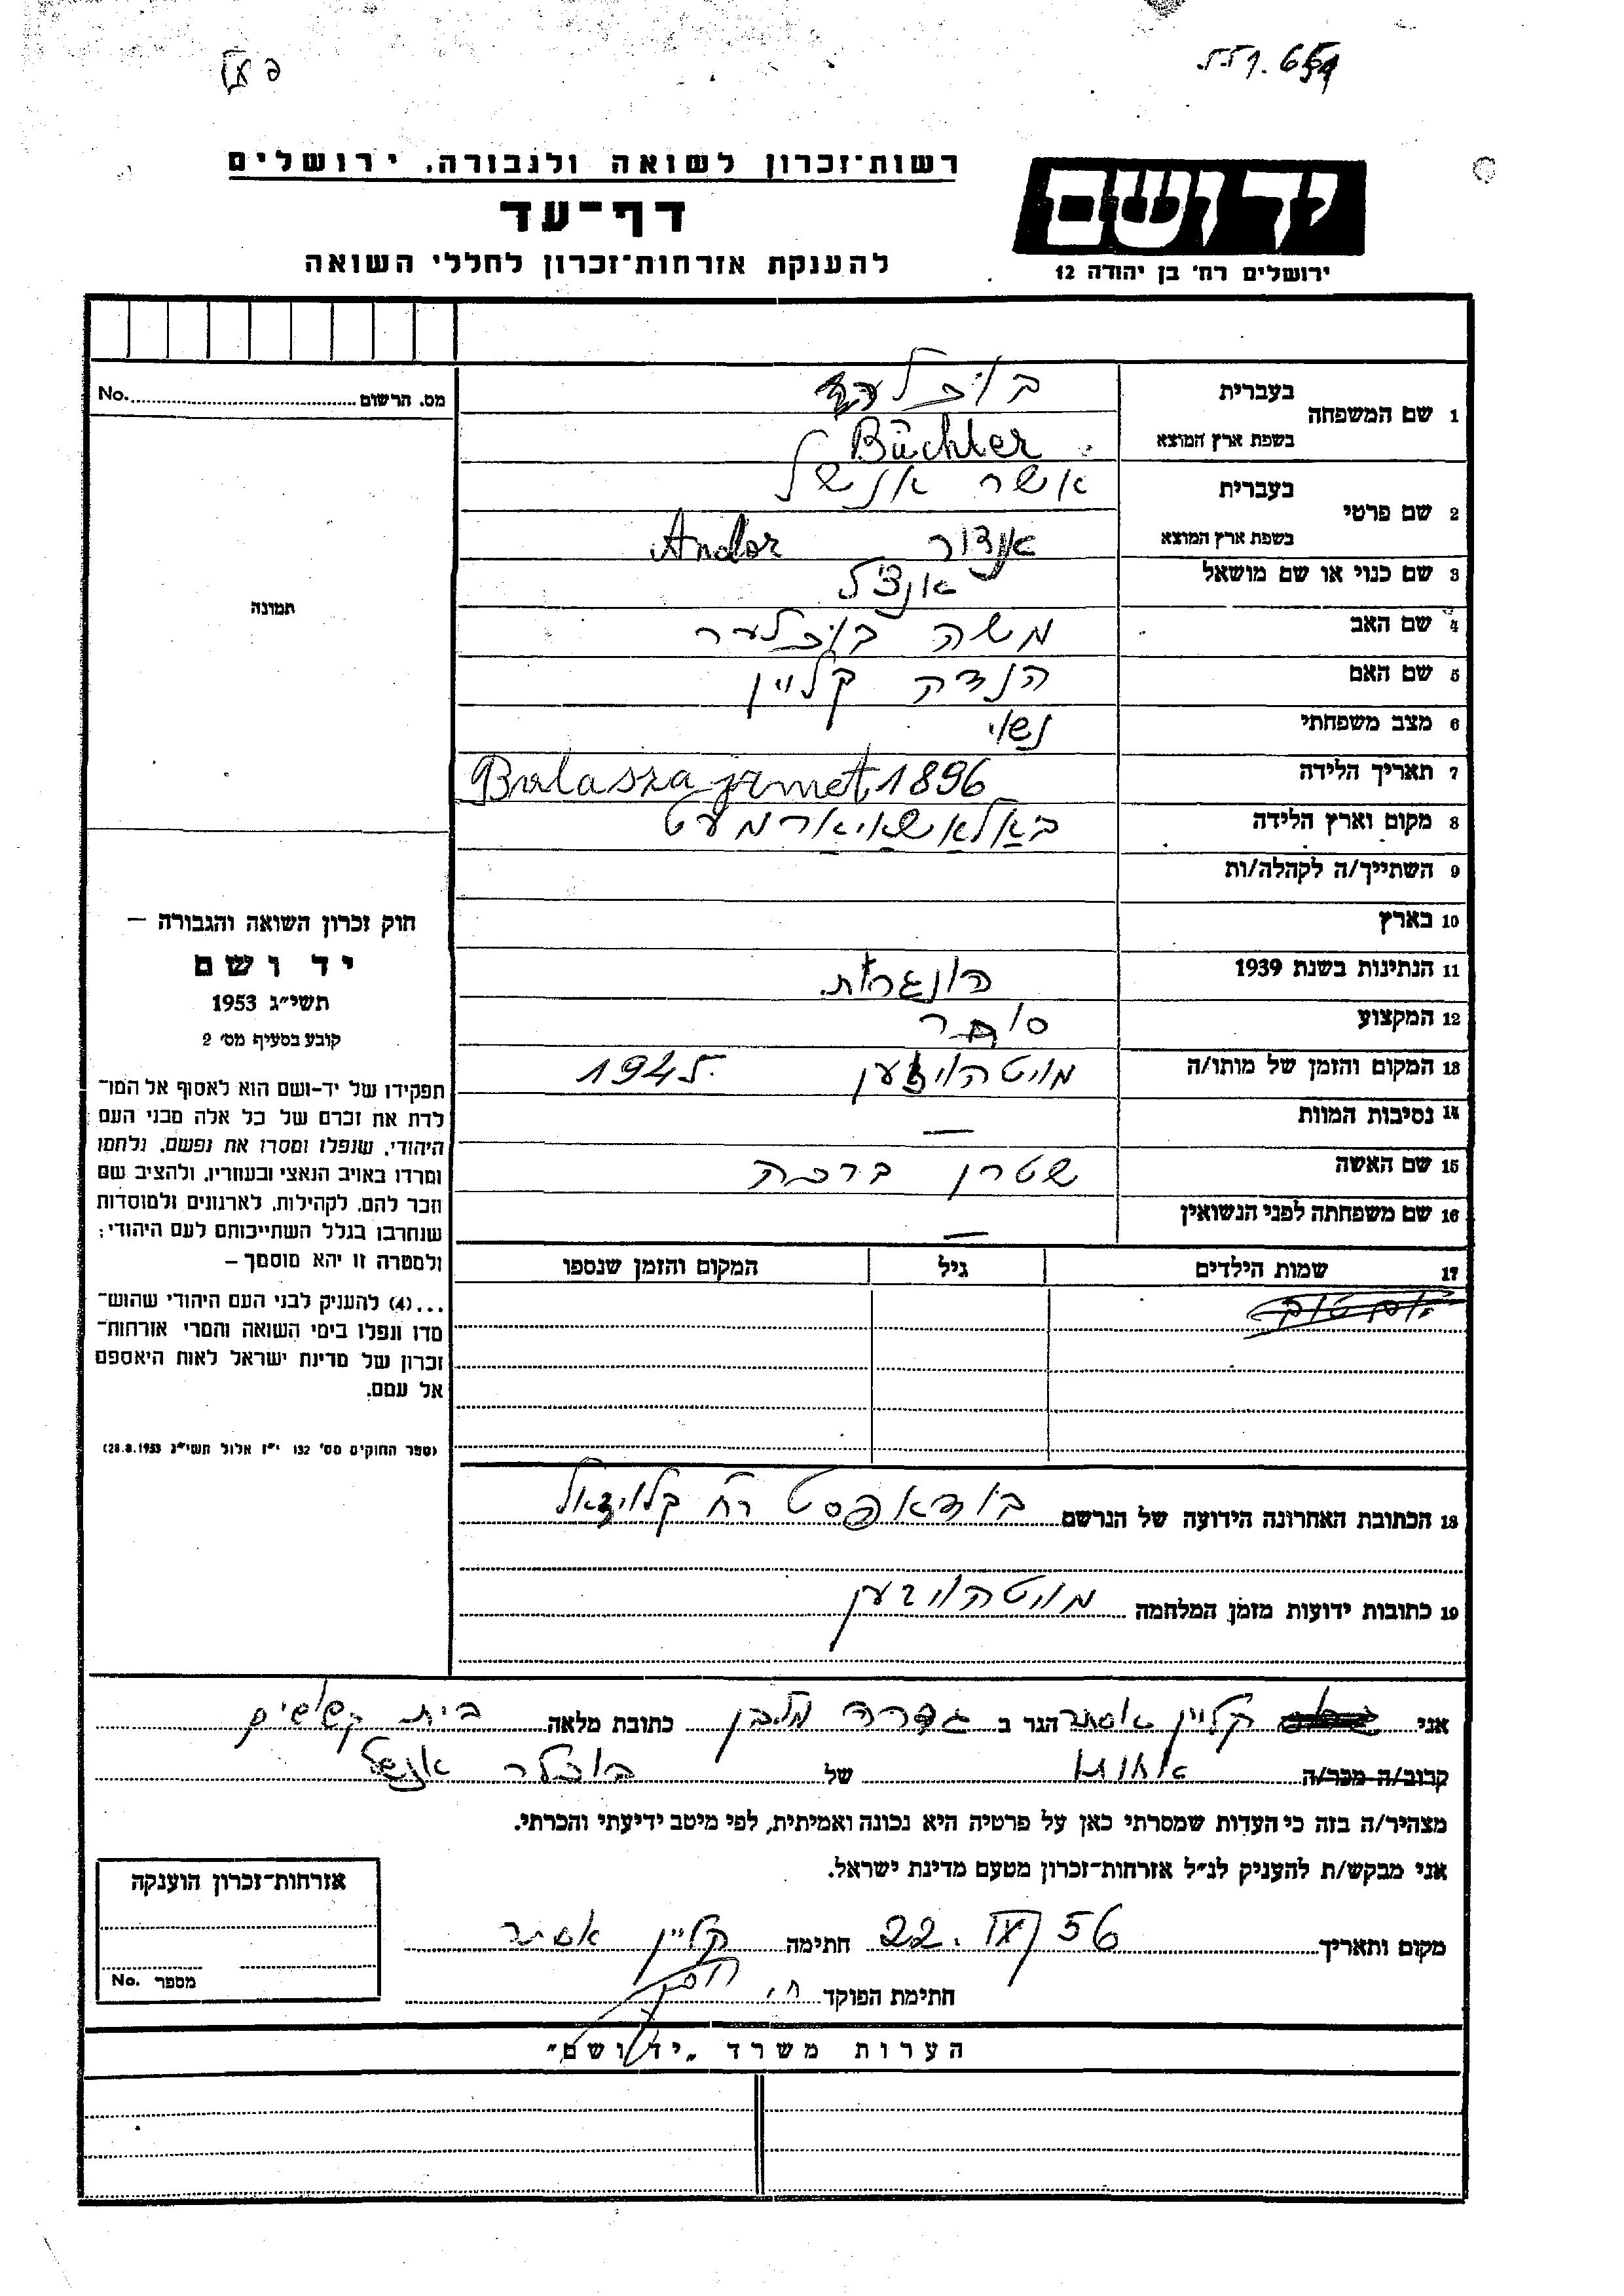 רשות־זכרון לשואה ולגבורה, ירושלים
יד ושם
דף־עד
להענקת אזרחות־זכרון לחללי השואה
ירושלים רח׳ בן יהודה 12
מס. הרשום No.
1 שם המשפחה בעברית בוכלער
בשפת ארץ המוצא Büchler
2 שם פרטי בעברית אשר אנשל
בשפת ארץ המוצא אנדור Andor
3 שם כנוי או שם מושאל אנצ׳ל
4 שם האב משה בוכלער
5 שם האם הנדה קליין
6 מצב משפחתי נשוי
7 תאריך הלידה Balassa jarmet, 1896
8 מקום וארץ הלידה באלאשאיארמעט
9 השתייך/ה לקהלה/ות
10 בארץ
11 הנתינות בשנת 1939 הונגרית.
12 המקצוע סוחר
13 המקום והזמן של מותו/ה מויטהויזען 1945
14 נסיבות המוות —
15 שם האשה שטרן ברכה
16 שם משפחתה לפני הנשואין —
17 שמות הילדים גיל המקום והזמן שנספו
תמונה
חוק זכרון השואה והגבורה —
יד ושם
תשי״ג 1953
קובע בסעיף מס׳ 2
תפקידו של יד-ושם הוא לאסוף אל המו־
לדת את זכרם של כל אלה מבני העם
היהודי, שנפלו ומסרו את נפשם, נלחמו
ומרדו באויב הנאצי ובעוזריו, ולהציב שם
וזכר להם, לקהילות, לארגונים ולמוסדות
שנחרבו בגלל השתייכותם לעם היהודי;
ולמטרה זו יהא מוסמך —
...(4) להעניק לבני העם היהודי שהוש־
מדו ונפלו בימי השואה והמרי אזרחות־
זכרון של מדינת ישראל לאות היאספם
אל עמם.
(ספר החוקים מס׳ 132 י״ז אלול תשי״ג 28.8.1953)
18 הכתובת האחרונה הידועה של הנרשם בודאפסט רח׳ קלויזאל
19 כתובות ידועות מזמן המלחמה מויטהויזען
אני קליין אסתר הגר ב גדרה מלבן כתובת מלאה בית קשישים
קרוב/ה מכר/ה אחות של בוכלר אנשל
מצהיר/ה בזה כי העדות שמסרתי כאן על פרטיה היא נכונה ואמיתית, לפי מיטב ידיעתי והכרתי.
אני מבקש/ת להעניק לנ״ל אזרחות־זכרון מטעם מדינת ישראל.
מקום ותאריך 22. IX 56 חתימה קליין אסתר
חתימת הפוקד
אזרחות־זכרון הוענקה
מספר No.
הערות משרד „יד ושם״